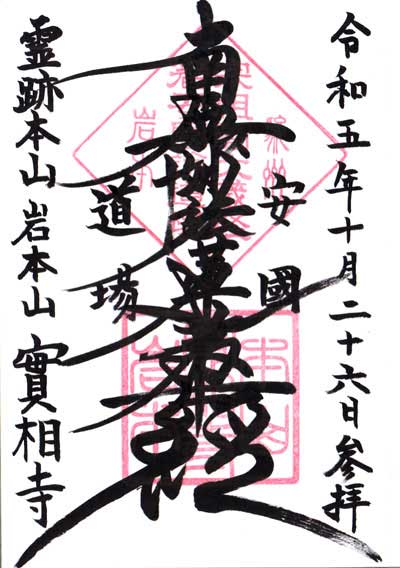 令和五年十月二十六日参拝
安國
南無妙法蓮華経
道場
霊跡本山 岩本山 實相寺